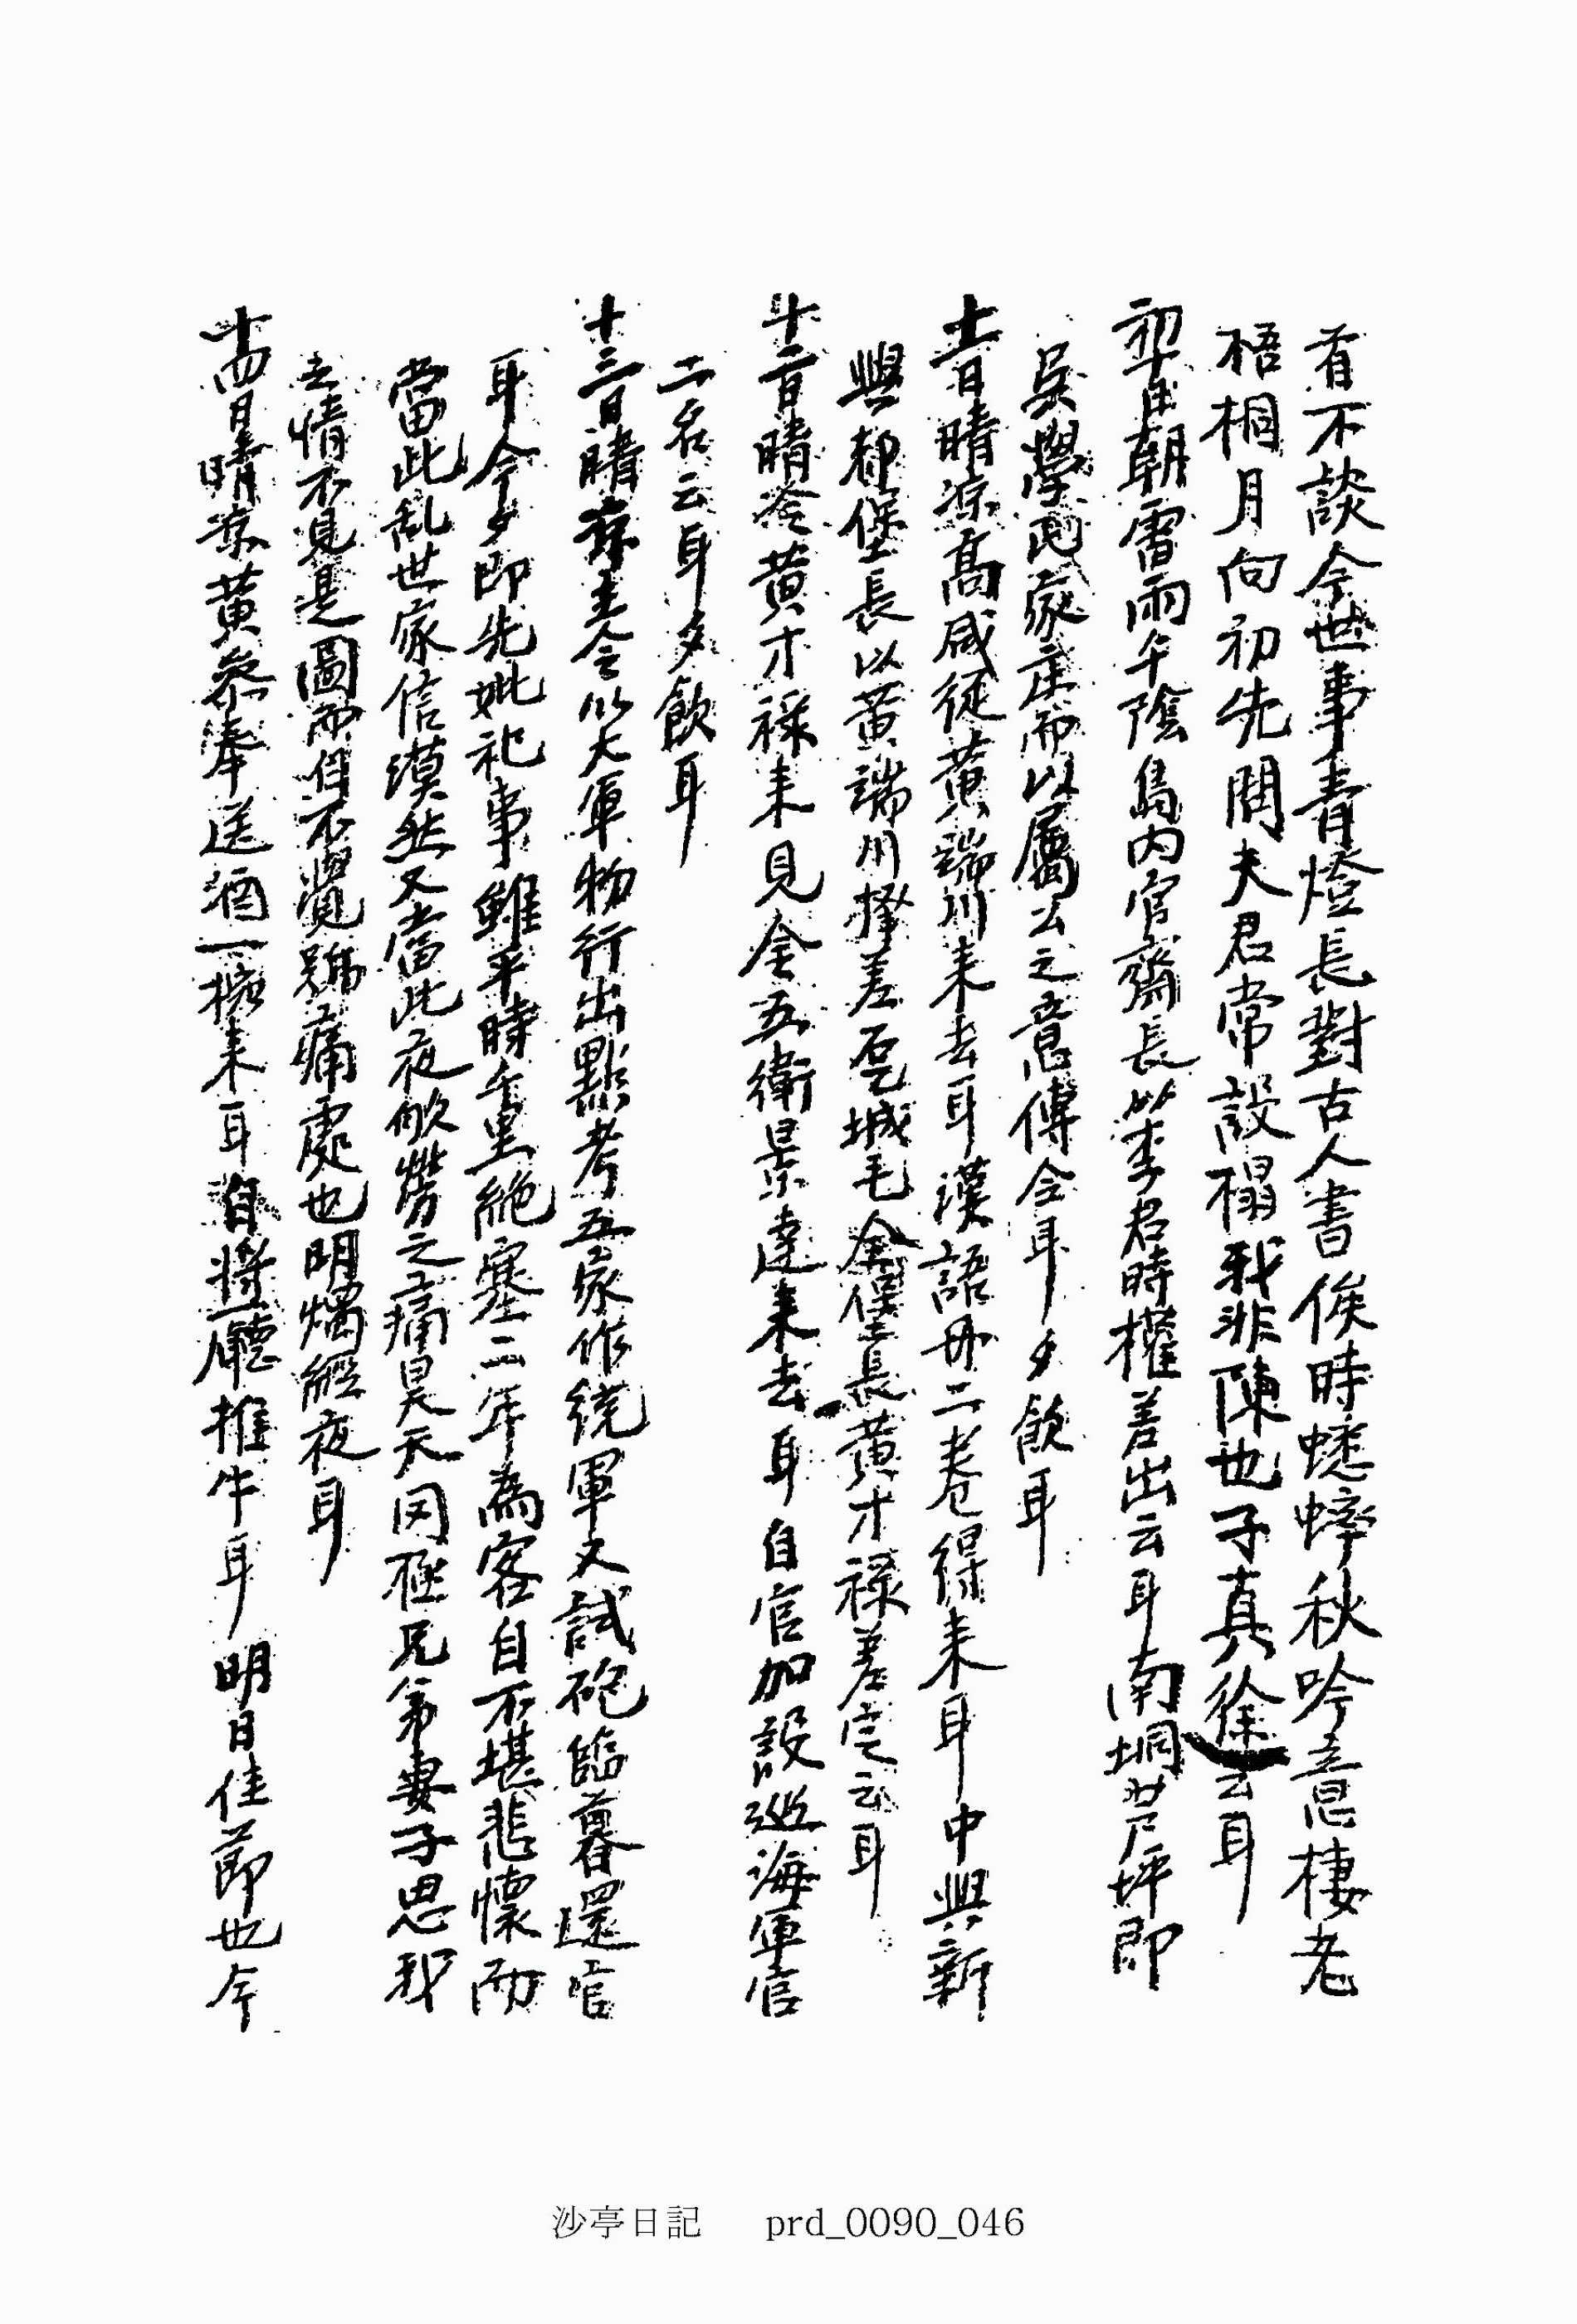 有不談今世事青燈長對古人書俟時蟋蟀秋吟意棲老
梧桐月向初先聞夫君常設榻我非陳也子真徐云耳
初十日朝雷雨午陰島內官齋長以等李君時權差出云耳南垌芦坪即
吳學民家庄而以屬公之意傅令耳夕飮耳
十一日晴凉高咸從黃端川來去耳漢語冊二卷得來耳中興新
興都堡長以黃端川擇差砲城毛全堡長黃才祿差定云耳
十二日晴冷黃才祿來見金五衛景達來去耳自官加設巡海軍官
二名云耳夕飮耳
十三日晴凉主令以大軍物行出點考五家作統軍又試砲臨暮還官
耳今夕即先妣祀事雖平時千里絶塞二年為客自不堪悲懷而
當此乱世家信漠然又當此夜劬勞之痛昊天罔極兄弟妻子思我
之情不見是圖而自不覺號痛處也明燭經夜耳
十四日晴凉黃參奉送酒一樽來耳自將廳推牛耳 明日佳節也今
沙亭日記 prd_0090_046